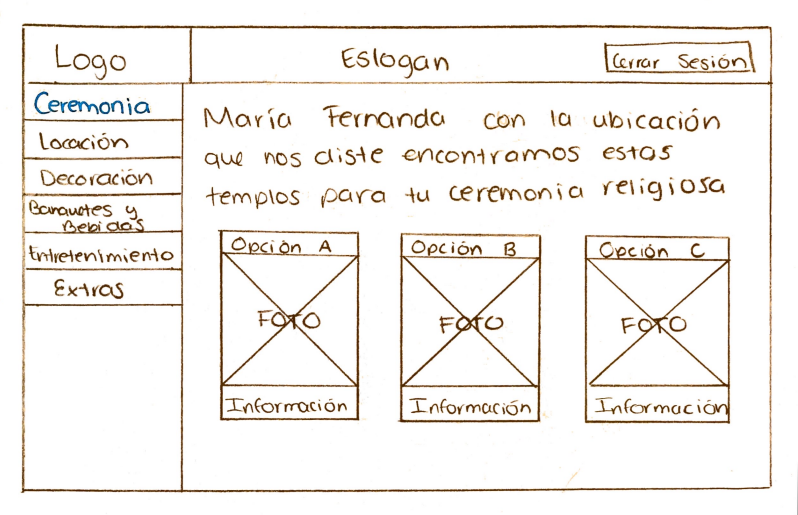 Logo
Eslogan
Cerrar Sesión
Ceremonia
Locación
Decoración
Banquetes y
Bebidas
Entretenimiento
Extras
María Fernanda con la ubicación
que nos diste encontramos estas
templos para tu ceremonia religiosa
Opción A
FOTO
Información
Opción B
FOTO
Información
Opción C
FOTO
Información